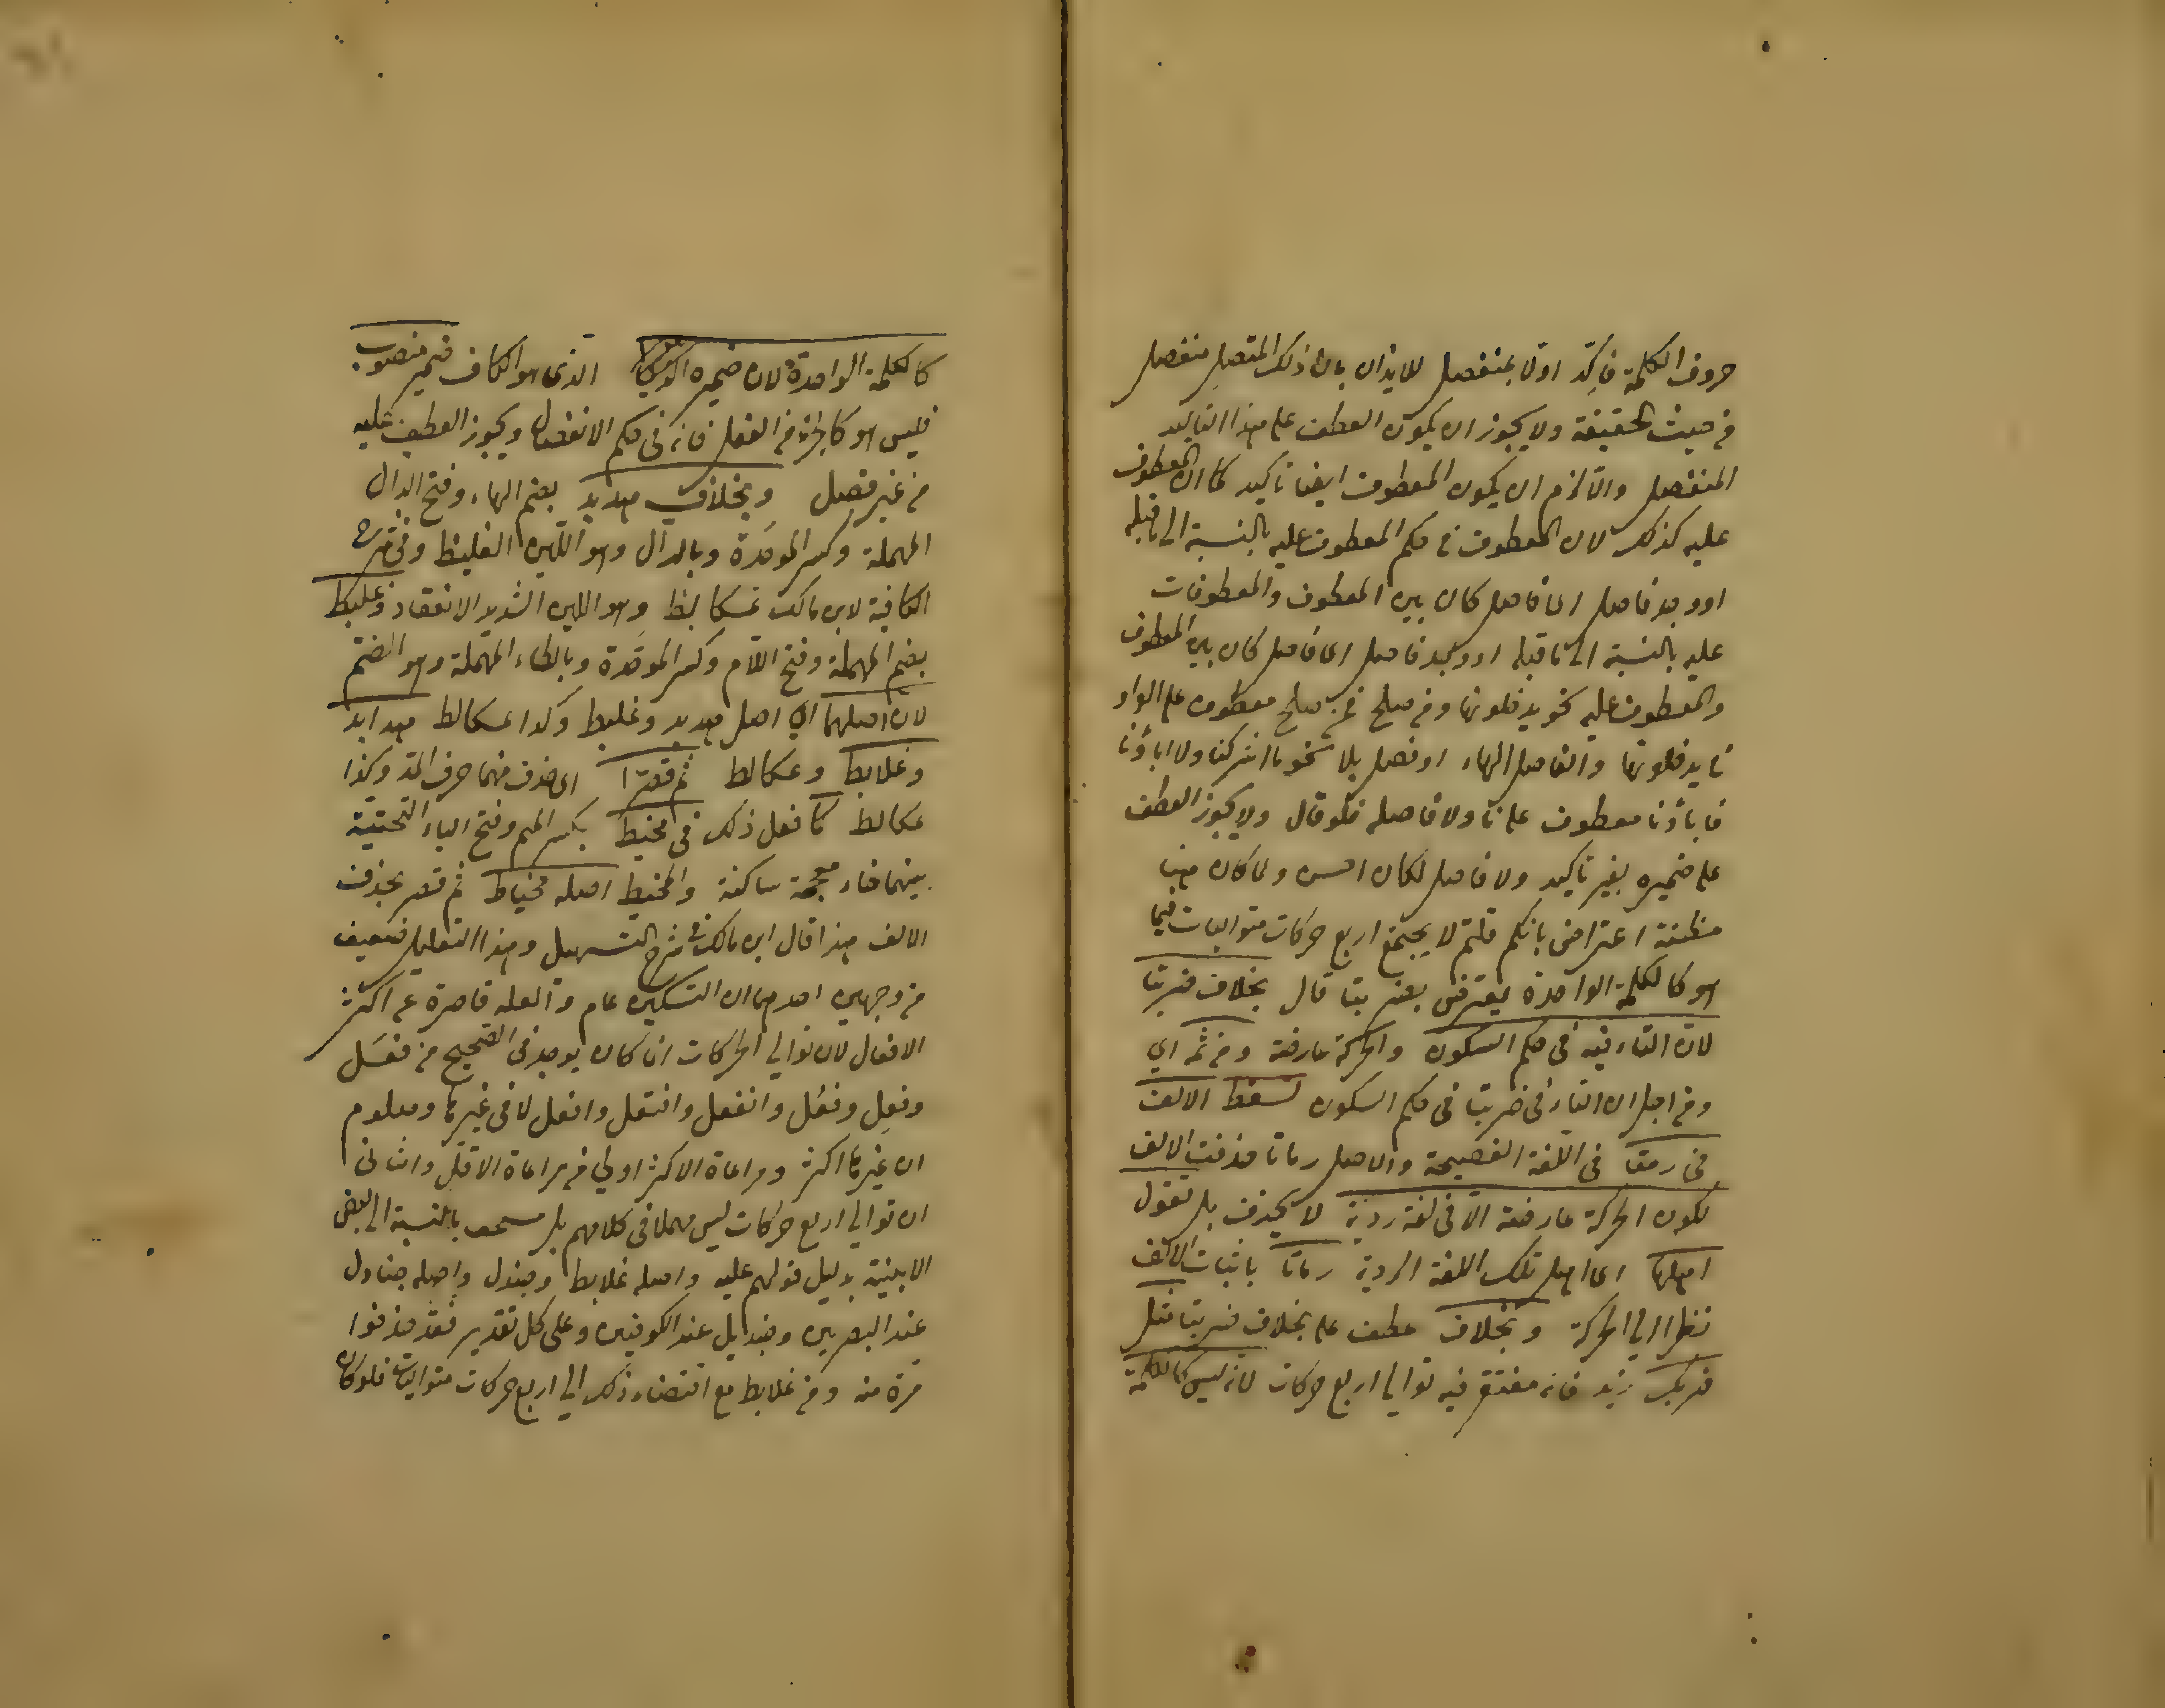 حروف الكلمة فاكد اولا بمنفصل للايذان بان ذلك المتصل منفصل
من حيث الحقيقة ولا يجوز ان يكون العطف على هذا التاكيد
المنفصل والا لزم ان يكون المعطوف ايضا تاكيد كما ان المعطوف
عليه كذلك لان المعطوف في حكم المعطوف عليه بالنسبة الى ما قبله
او وجد فاصل اى فاصل كان بين المعطوف والمعطوفات
عليه بالنسبة الى ما قبله او وجد فاصل اى فاصل كان بين المعطوف
والمعطوف عليه نحو يدخلونها ومن صلح فمن صلح معطوف على الواو
فى يدخلونها والفاصل الهاء او فصل بلا نحو ما اشركنا ولا اباؤنا
فاباؤنا معطوف على نا ولا فاصلة فلو قال ولا يجوز العطف
على ضميره بغير تاكيد ولا فاصل لكان احسن ولما كان هنا
مظنة اعتراض بانكم قلتم لا يجتمع اربع حركات متواليات فيما
هو كالكلمة الواحدة يعترض بضربتا قال بخلاف ضربتا
لان التاء فيه فى حكم السكون والحركة عارضة ومن ثم اي
ومن اجل ان التاء فى ضربتا فى حكم السكون تسقط الالف
فى رمتا فى اللغة الفصيحة والاصل رماتا حذفت الالف
لكون الحركة عارضة الا فى لغة ردية لا يحذف بل تقول
اهلها اى اهل تلك اللغة الردية رماتا باثبات الالف
نظرا الي الحركة وبخلاف عطف على بخلاف ضربتا مثل
ضربك زيد فانه مغتفر فيه توالى اربع حركات لانه ليس كالكلمة
كالكلمة الواحدة لان ضميره الذى هو الكاف ضمير منصوب
فليس هو كالجزء من الفعل فانه فى حكم الانفصال ويجوز العطف عليه
من غير فصل وبخلاف هدبد بضم الهاء وفتح الدال
المهملة وكسر الموحدة وبالدال وهو اللبن الغليظ وفى شرح
الكافية لابن مالك عسكالبط وهو اللبن الشديد الانعقاد وعلبط
بضم المهملة وفتح اللام وكسر الموحدة وبالطاء المهملة وهو الضخم
لان اصلهما اي اصل هدبد وغلبط وكذا عكالط هدابد
وغلابط وعكالط ثم قصرا اى حذف منهما حرف المد وكذا
عكالط كما فعل ذلك فى مخيط بكسر الميم وفتح الياء التحتية
بينهما خاء معجمة ساكنة والمخيط اصله مخياط ثم قصر بحذف
الالف هذا قال ابن مالك فى شرح التسهيل وهذا التعليل ضعيف
من وجهين احدهما ان التسكين عام والعله قاصرة عن اكثر
الافعال لان توالي الحركات انما كان يوجد فى الصحيح من فعَل
وفعِل وفعُل وانفعل وافتعل وافعل لا فى غيرها ومعلوم
ان غيرها اكثر ومراعاة الاكثر اولي من مراعاة الاقل والثانى
ان توالي اربع حركات ليس مهملا فى كلامهم بل مستخف بالنسبة الى بعض
الابنية بدليل قولهم علبط واصله غلابط وجندل واصله جنادل
عند البصريين وجنديل عند الكوفيين وعلى كل تقدير فقد حذفوا
مرة منه ومن غلابط مع اقتضاء ذلك الي اربع حركات متواليات فلو كان